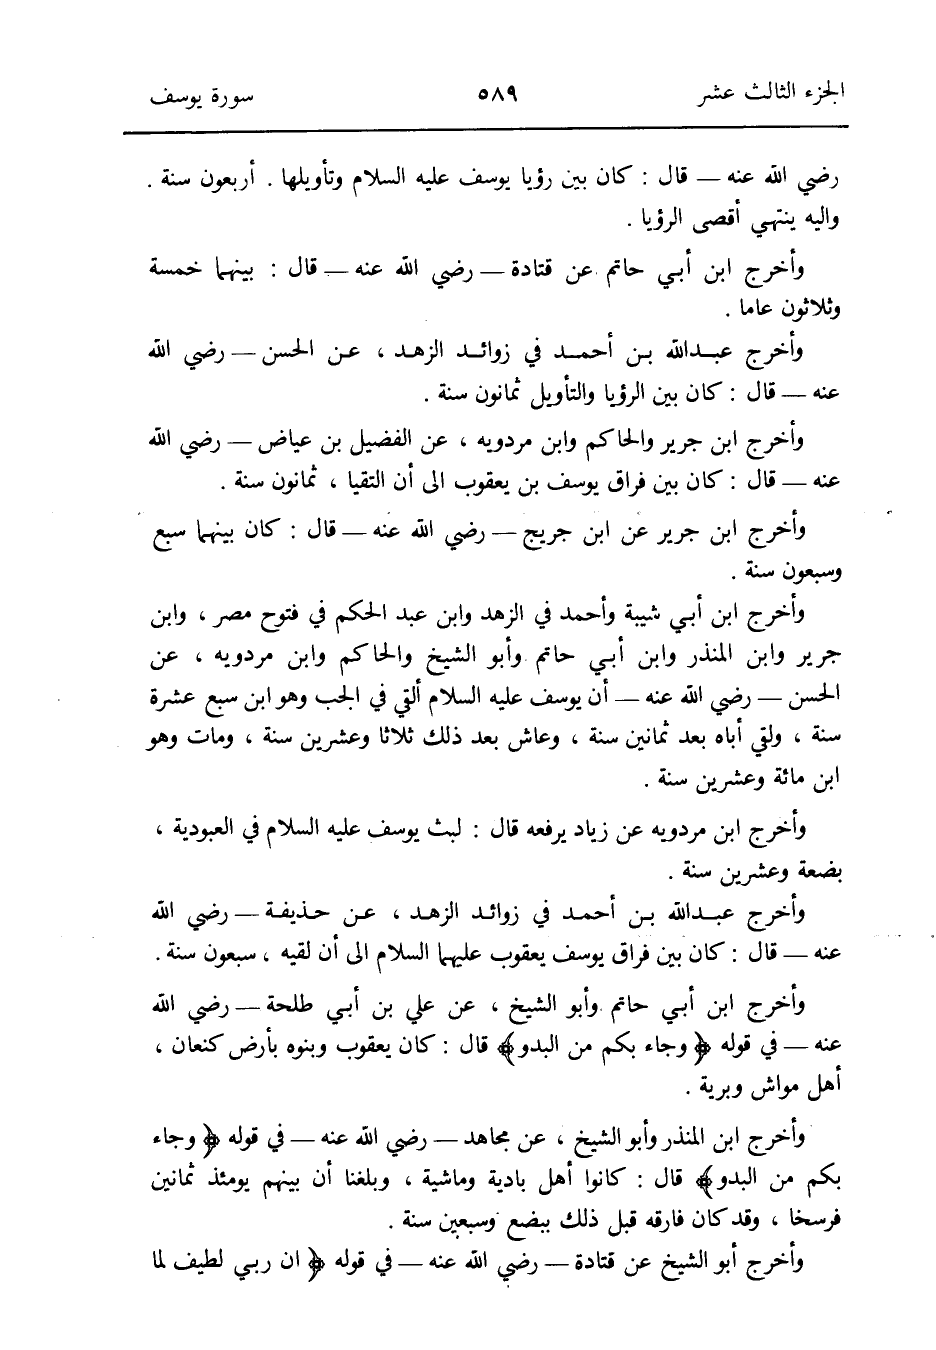 الجزء الثالث عشر ٥٨٩ سورة يوسف
رضي الله عنه — قال : كان بين رؤيا يوسف عليه السلام وتأويلها . أربعون سنة .
واليه ينتهي أقصى الرؤيا .
وأخرج ابن أبي حاتم عن قتادة — رضي الله عنه — قال : بينهما خمسة
وثلاثون عاما .
وأخرج عبدالله بن أحمد في زوائد الزهد ، عن الحسن — رضي الله
عنه — قال : كان بين الرؤيا والتأويل ثمانون سنة .
وأخرج ابن جرير والحاكم وابن مردويه ، عن الفضيل بن عياض — رضي الله
عنه — قال : كان بين فراق يوسف بن يعقوب الى أن التقيا ، ثمانون سنة .
وأخرج ابن جرير عن ابن جريج — رضي الله عنه — قال : كان بينهما سبع
وسبعون سنة .
وأخرج ابن أبي شيبة وأحمد في الزهد وابن عبد الحكم في فتوح مصر ، وابن
جرير وابن المنذر وابن أبي حاتم وأبو الشيخ والحاكم وابن مردويه ، عن
الحسن — رضي الله عنه — أن يوسف عليه السلام ألقي في الجب وهو ابن سبع عشرة
سنة ، ولقي أباه بعد ثمانين سنة ، وعاش بعد ذلك ثلاثا وعشرين سنة ، ومات وهو
ابن مائة وعشرين سنة .
وأخرج ابن مردويه عن زياد يرفعه قال : لبث يوسف عليه السلام في العبودية ،
بضعة وعشرين سنة .
وأخرج عبدالله بن أحمد في زوائد الزهد ، عن حذيفة — رضي الله
عنه — قال : كان بين فراق يوسف يعقوب عليهما السلام الى أن لقيه ، سبعون سنة .
وأخرج ابن أبي حاتم وأبو الشيخ ، عن علي بن أبي طلحة — رضي الله
عنه — في قوله ﴿ وجاء بكم من البدو﴾ قال : كان يعقوب وبنوه بأرض كنعان ،
أهل مواش وبرية .
وأخرج ابن المنذر وأبو الشيخ ، عن مجاهد — رضي الله عنه — في قوله ﴿ وجاء
بكم من البدو﴾ قال : كانوا أهل بادية وماشية ، وبلغنا أن بينهم يومئذ ثمانين
فرسخا ، وقد كان فارقه قبل ذلك ببضع وسبعين سنة .
وأخرج أبو الشيخ عن قتادة — رضي الله عنه — في قوله ﴿ ان ربي لطيف لما